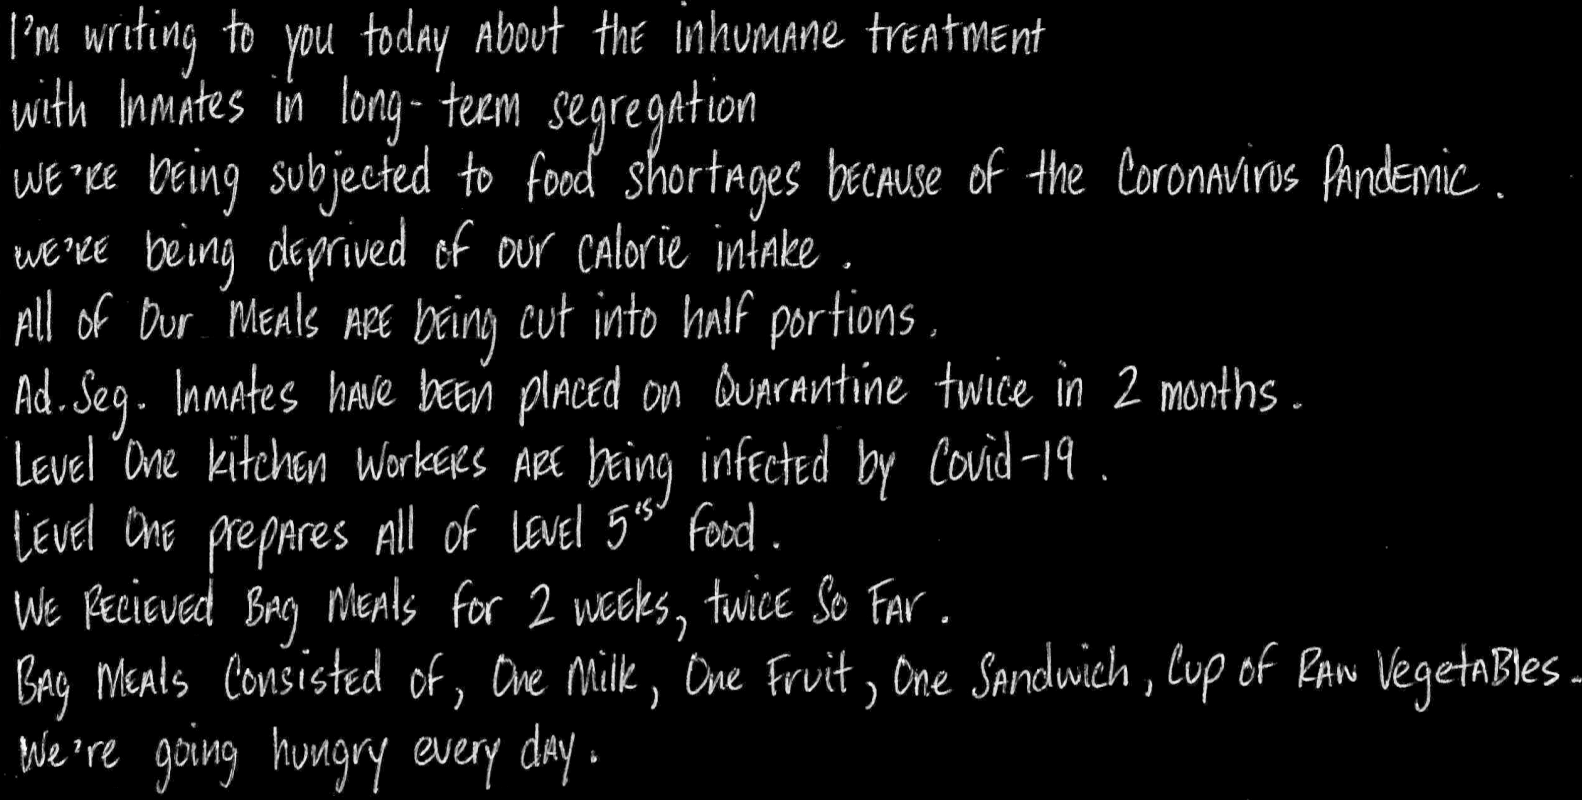 I'm writing to you today about the inhumane treatment
with Inmates in long-term segregation
We're being subjected to food shortages because of the Coronavirus Pandemic.
We're being deprived of our calorie intake.
All of Our Meals are being cut into half portions.
Ad. Seg. Inmates have been placed on Quarantine twice in 2 months.
Level One kitchen Workers are being infected by Covid-19.
Level One prepares all of Level 5's food.
We Recieved Bag Meals for 2 weeks, twice So Far.
Bag Meals Consisted of, One Milk, One Fruit, One Sandwich, Cup of Raw Vegetables.
We're going hungry every day.